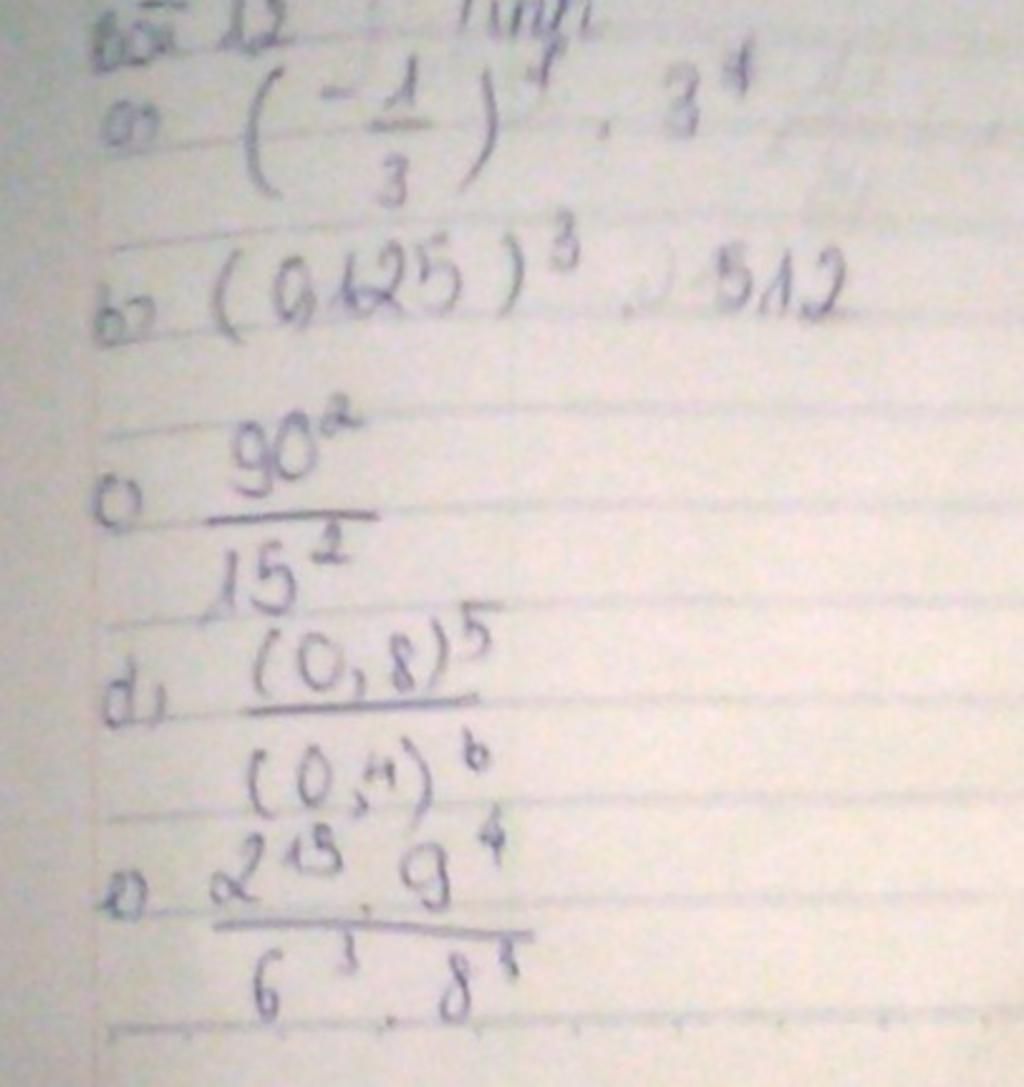 Bài 12 Tính
a) (-1/3)^7 . 3^7
b) (0,125)^3 . 512
c) 90^2 / 15^2
d) (0,8)^5 / (0,4)^6
e) 2^15 . 9^4 / 6^3 . 8^3